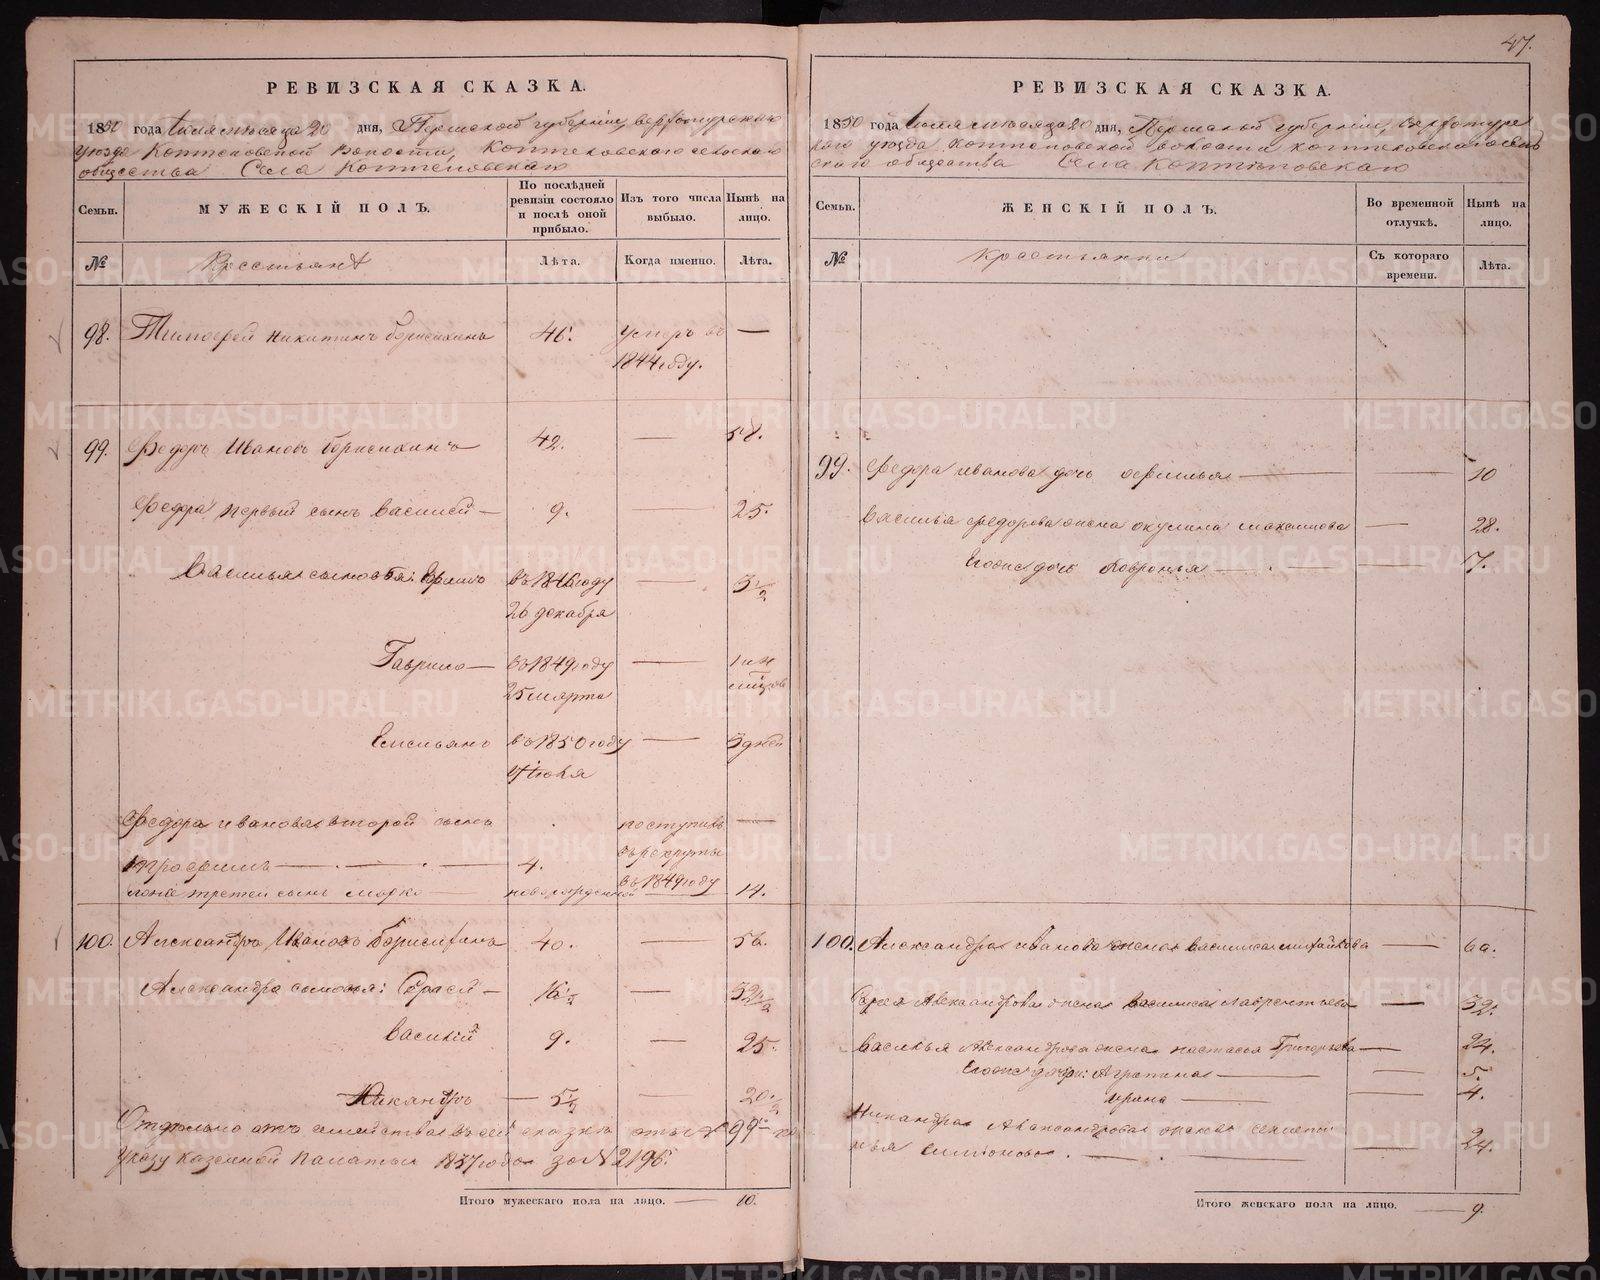 РЕВИЗСКАЯ СКАЗКА.
1850 года Іюля мѣсяца 20 дня, Пермской губерніи, Верхотурскаго
уезда Коптеловской волости, Коптеловскаго сельскаго
общества Села Коптеловскаго
Семьи.
МУЖЕСКІЙ ПОЛЪ.
По послѣдней ревизіи состояло и послѣ оной прибыло.
Изъ того числа выбыло.
Нынѣ на лицо.
№
Крестьянъ
Лѣта.
Когда именно.
Лѣта.
98. Тимофей Никитинъ Борисихинъ 46. умеръ въ —
1844 году.
99. Федоръ Ивановъ Борисихинъ 42. — 58.
Федора первый сынъ Василей — 9. 25.
Василья сыновья: въ 1846 году — 3½
26 декабря
Гаврило — въ 1849 году — 1 и
25 марта
Емельянъ въ 1850 году — 3 дней
17 Іюля
Федора Иванова второй сынъ поступилъ —
Трофимъ — 4. въ рекруты
въ 1849 году
третей сынъ Марко — новорожденной 14.
100. Александръ Ивановъ Борисихинъ 40. — 56.
Александра сыновья: Герасей — 16½ — 32½
Василій 9. — 25.
Никандръ — 5½ — 20½
семейства въ сей сказкѣ 99
указу Казенной Палаты 1837 года за № 2196.
Итого мужескаго пола на лицо. — 10.
47.
РЕВИЗСКАЯ СКАЗКА.
1850 года Іюля мѣсяца 20 дня, Пермской губерніи, Верхотурс
каго уезда Коптеловской волости Коптеловскаго сель
скаго общества Села Коптеловскаго
Семьи.
ЖЕНСКІЙ ПОЛЪ.
Во временной отлучкѣ.
Нынѣ на лицо.
№
Крестьянки
Съ котораго времени.
Лѣта.
99. Федора Иванова дочь Офимья — 10
Василья Федорова жена Окулина Максимова — 28.
Егожъ дочь Хавронья — 7.
100. Александра Иванова жена Василиса Михайлова — 60.
Герасея Александрова жена Василиса Лаврентьева — 32.
Василья Александрова жена Настасья Григорьева — 24.
Егожъ дочери: Аграпина — 5.
Ирина — 4.
Никандра Александрова жена
Симіонова. — 24.
Итого женскаго пола на лицо. — 9.
METRIKI.GASO-URAL.RU